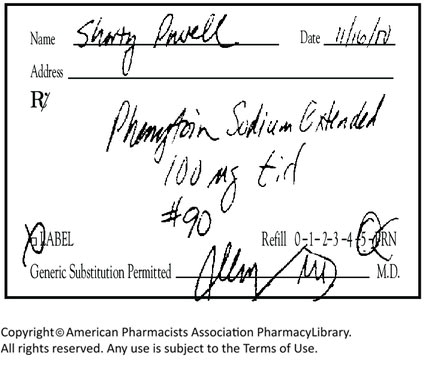 Name Shorty Powell Date 11/16/10
Address
Rx
Phenytoin Sodium Extended
100 mg tid
#90
LABEL Refill 0-1-2-3-4-5-PRN
Generic Substitution Permitted M.D.
Copyright © American Pharmacists Association PharmacyLibrary.
All rights reserved. Any use is subject to the Terms of Use.